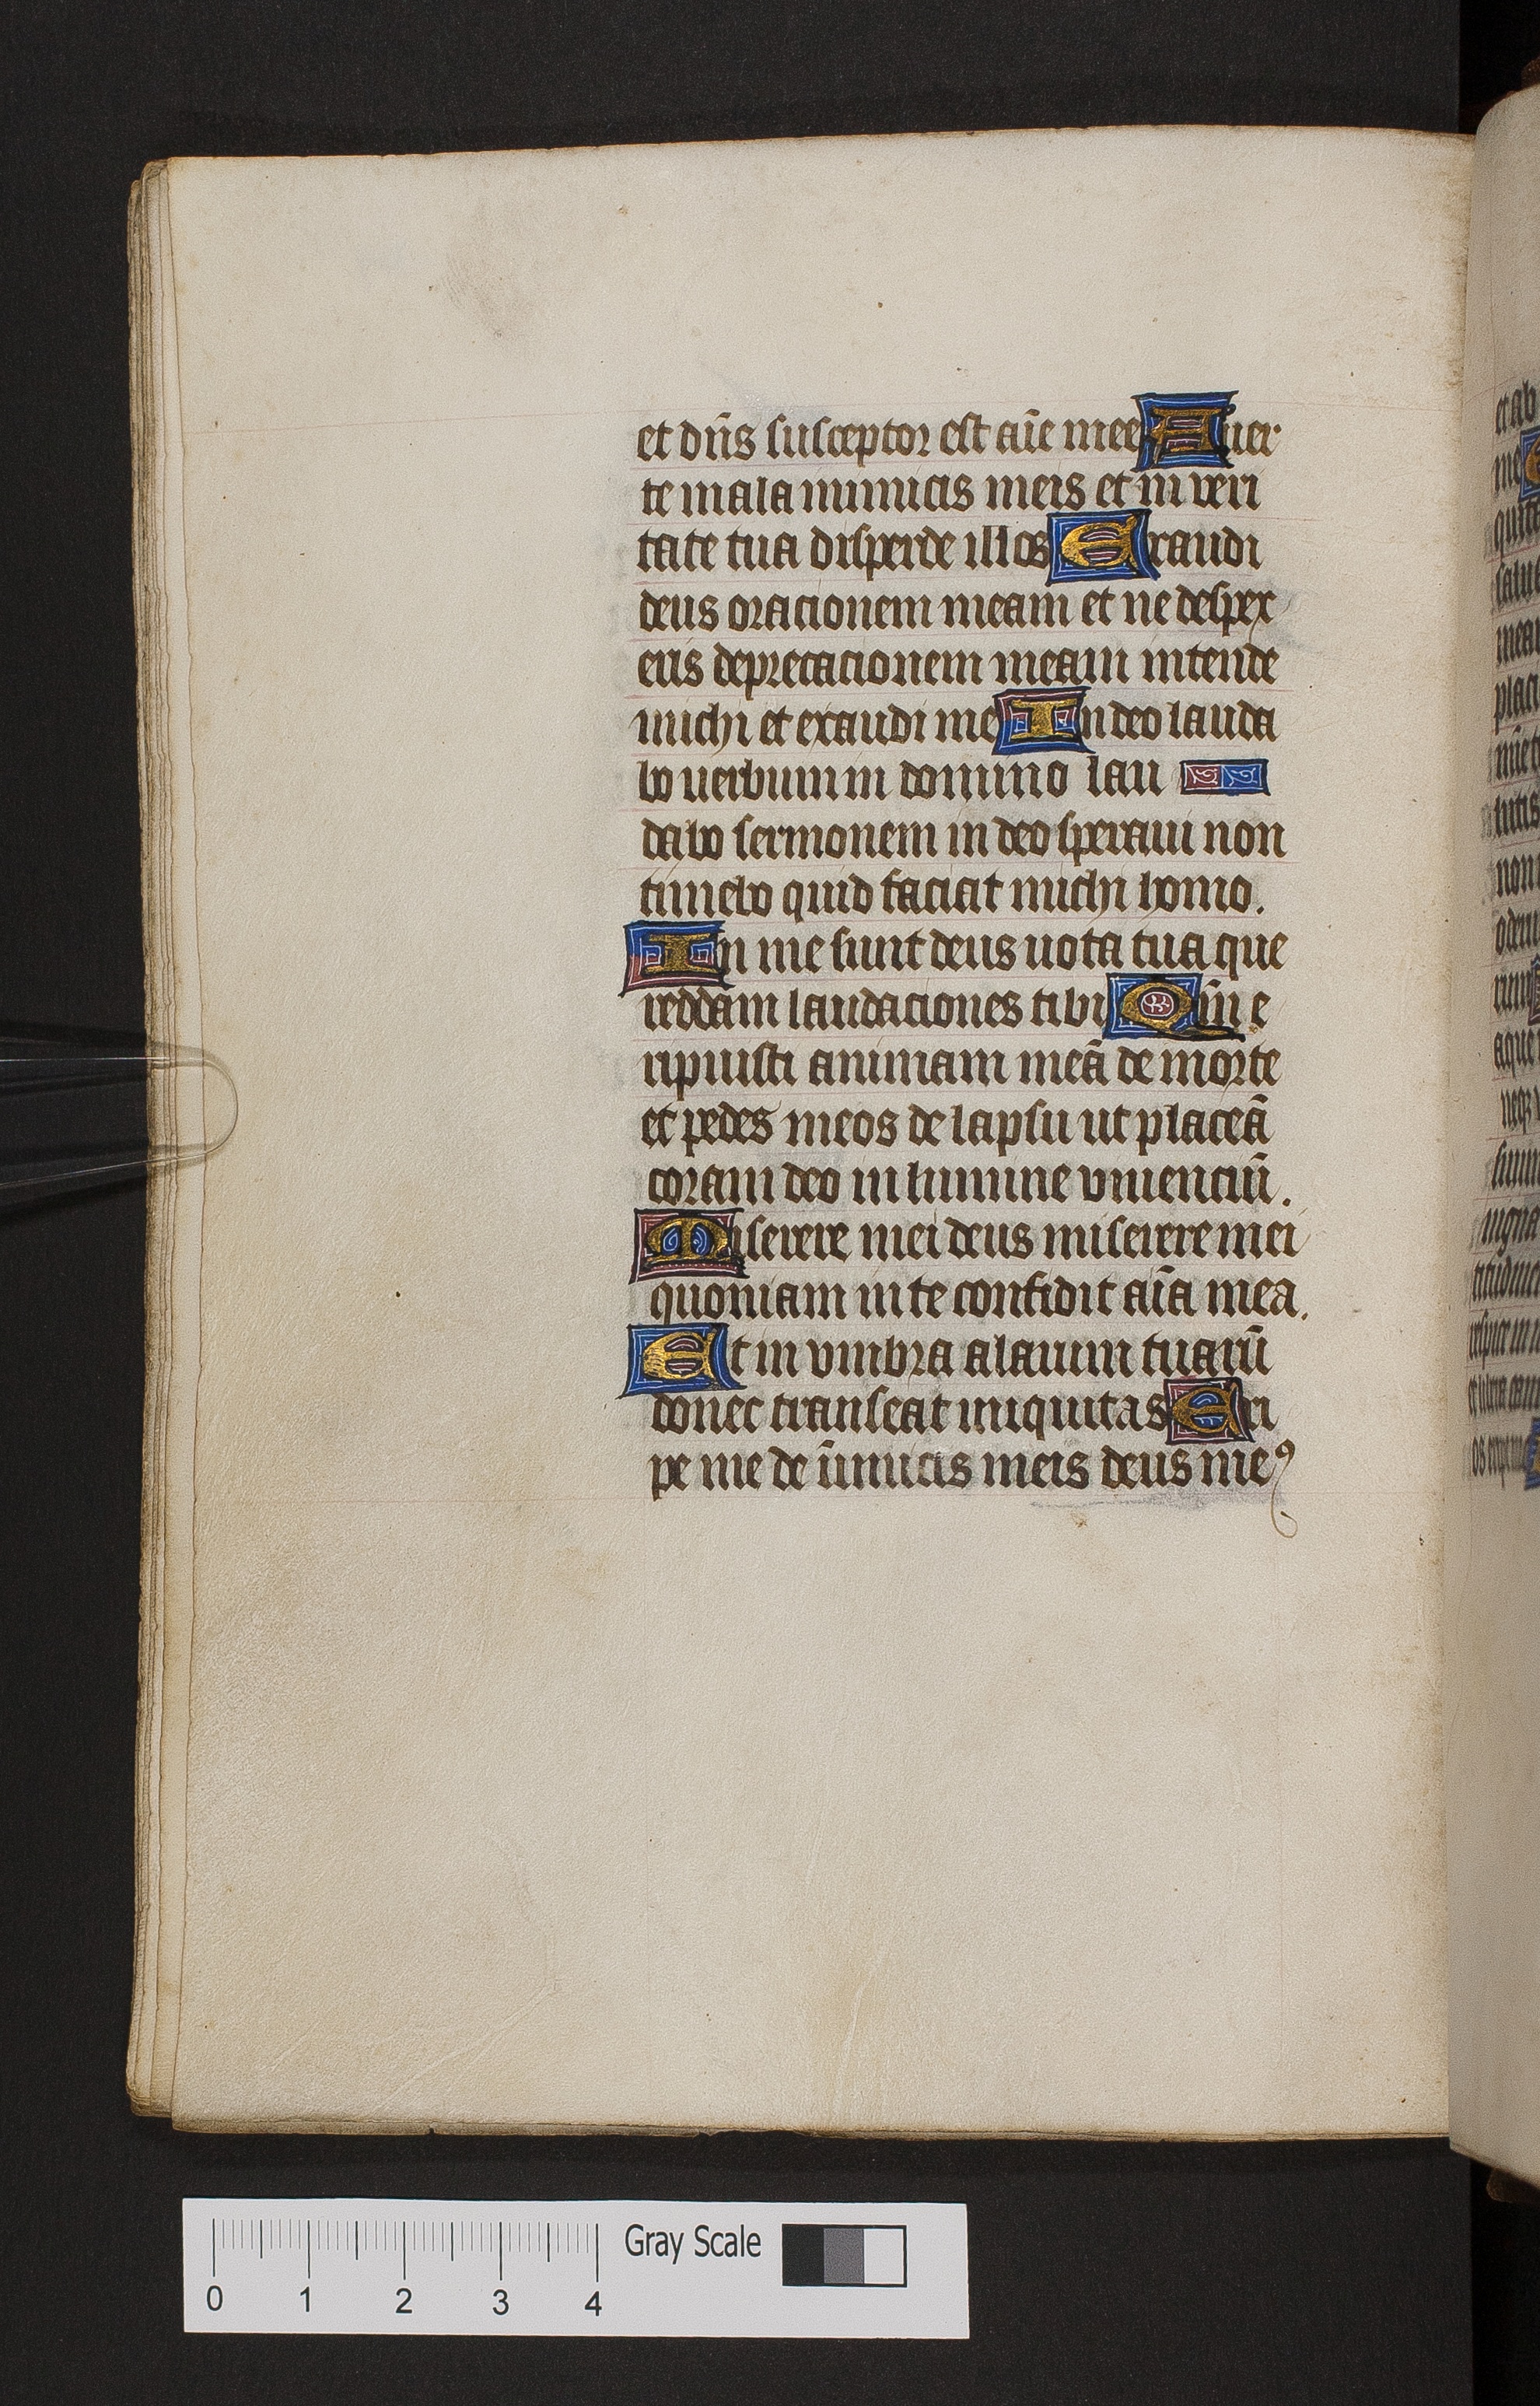 et dn̄s susceptor est aīe mee Auer
te mala inimicis meis et in veri
tate tua disperde illos Exaudi
deus oracionem meam et ne despex
eris deprecacionem meam intende
michi et exaudi me In deo lauda
bo uerbum in domino lau
dabo sermonem in deo speraui non
timebo quid faciat michi homo.
In me sunt deus uota tua que
reddam laudaciones tibi Qm̄ e
ripuisti animam meā de morte
et pedes meos de lapsu ut placeā
coram deo in lumine viuenciū.
Miserere mei deus miserere mei
quoniam in te confidit aīa mea.
Et in vmbra alarum tuarū
donec transeat iniquitas Eri
pe me de īimicis meis deus meꝰ
et ab
me
Gray Scale
0 1 2 3 4